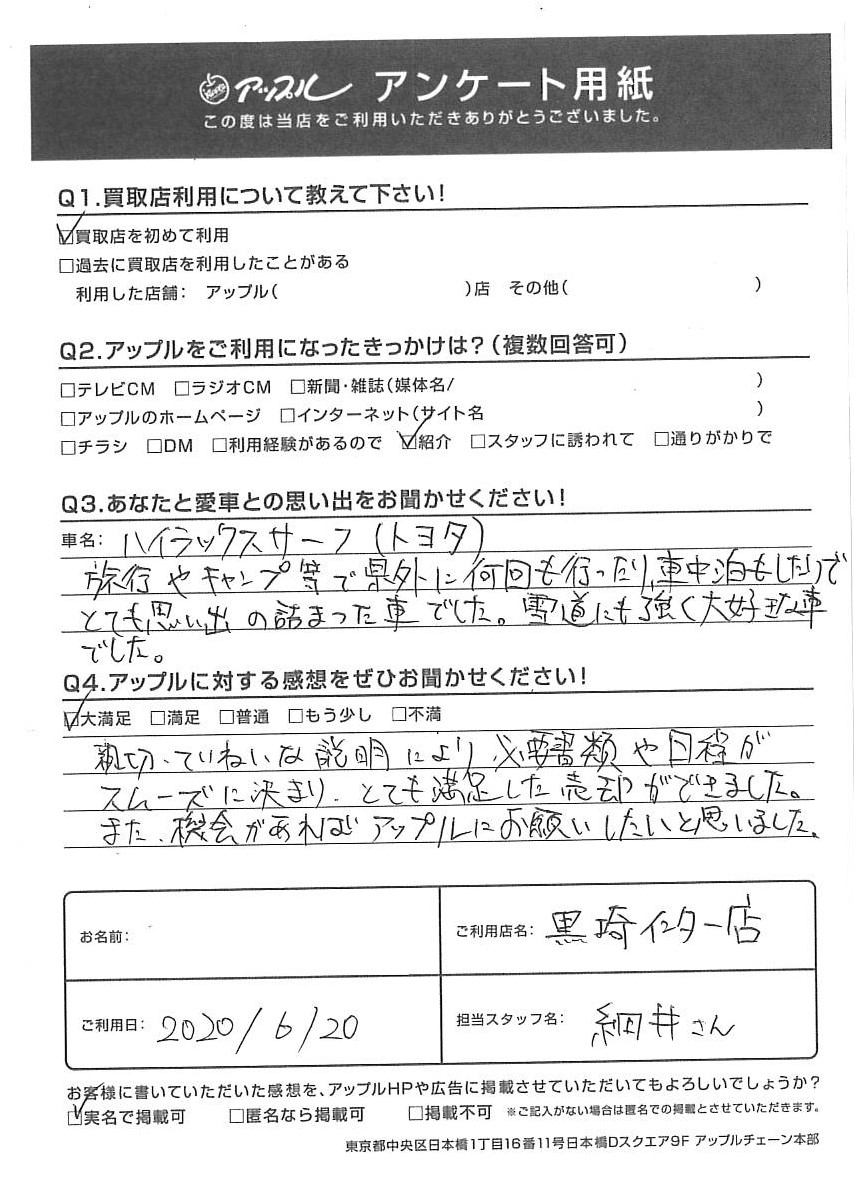 アップル アンケート用紙
この度は当店をご利用いただきありがとうございました。
Q1.買取店利用について教えて下さい!
☑買取店を初めて利用
□過去に買取店を利用したことがある
利用した店舗: アップル( )店 その他( )
Q2.アップルをご利用になったきっかけは?(複数回答可)
□テレビCM □ラジオCM □新聞・雑誌(媒体名/ )
□アップルのホームページ □インターネット(サイト名 )
□チラシ □DM □利用経験があるので ☑紹介 □スタッフに誘われて □通りがかりで
Q3.あなたと愛車との思い出をお聞かせください!
車名: ハイラックスサーフ(トヨタ)
旅行やキャンプ等で県外に何回も行ったり、車中泊もしたりで
とても思い出の詰まった車でした。雪道にも強く大好きな車
でした。
Q4.アップルに対する感想をぜひお聞かせください!
☑大満足 □満足 □普通 □もう少し □不満
親切、ていねいな説明により、必要書類や日程が
スムーズに決まり、とても満足した売却ができました。
また、機会があればアップルにお願いしたいと思いました。
お名前:
ご利用店名: 黒埼インター店
ご利用日: 2020/6/20
担当スタッフ名: 細井さん
お客様に書いていただいた感想を、アップルHPや広告に掲載させていただいてもよろしいでしょうか?
☑実名で掲載可 □匿名なら掲載可 □掲載不可 ※ご記入がない場合は匿名での掲載とさせていただきます。
東京都中央区日本橋1丁目16番11号日本橋Dスクエア9F アップルチェーン本部